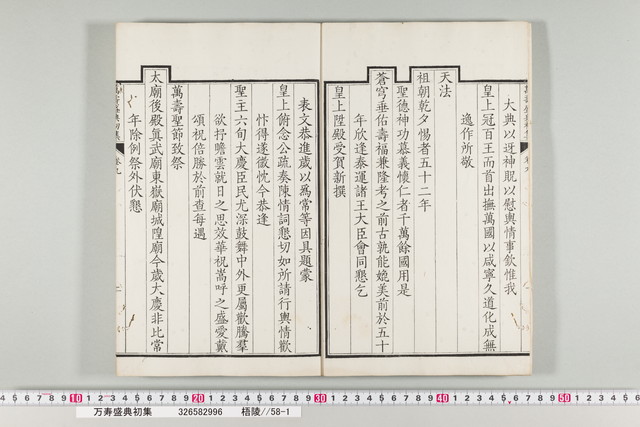 大典以迓神貺以慰輿情事欽惟我
皇上冠百王而首出撫萬國以咸寧久道化成無
逸作所敬
天法
祖朝乾夕惕者五十二年
聖德神功慕義懷仁者千萬餘國用是
蒼穹垂佑壽福兼隆考之前古孰能媲美前於五十
年欣逢泰運諸王大臣會同懇乞
皇上陞殿受賀新撰
表文恭進歲以為常等因具題蒙
皇上俯念公疏奏陳情詞懇切如所請行輿情歡
忭得遂徽忱今恭逢
聖主六旬大慶臣民尤深鼓舞中外更屬歡騰羣
欲抒瞻雲就日之思效華祝嵩呼之盛愛戴
頌祝倍勝於前查每遇
萬壽聖節致祭
太廟後殿真武廟東嶽廟城隍廟今歲大慶非比常
年除例祭外伏懇
万寿盛典初集 326582996 梧陵//58-1
10 20 30 40 50